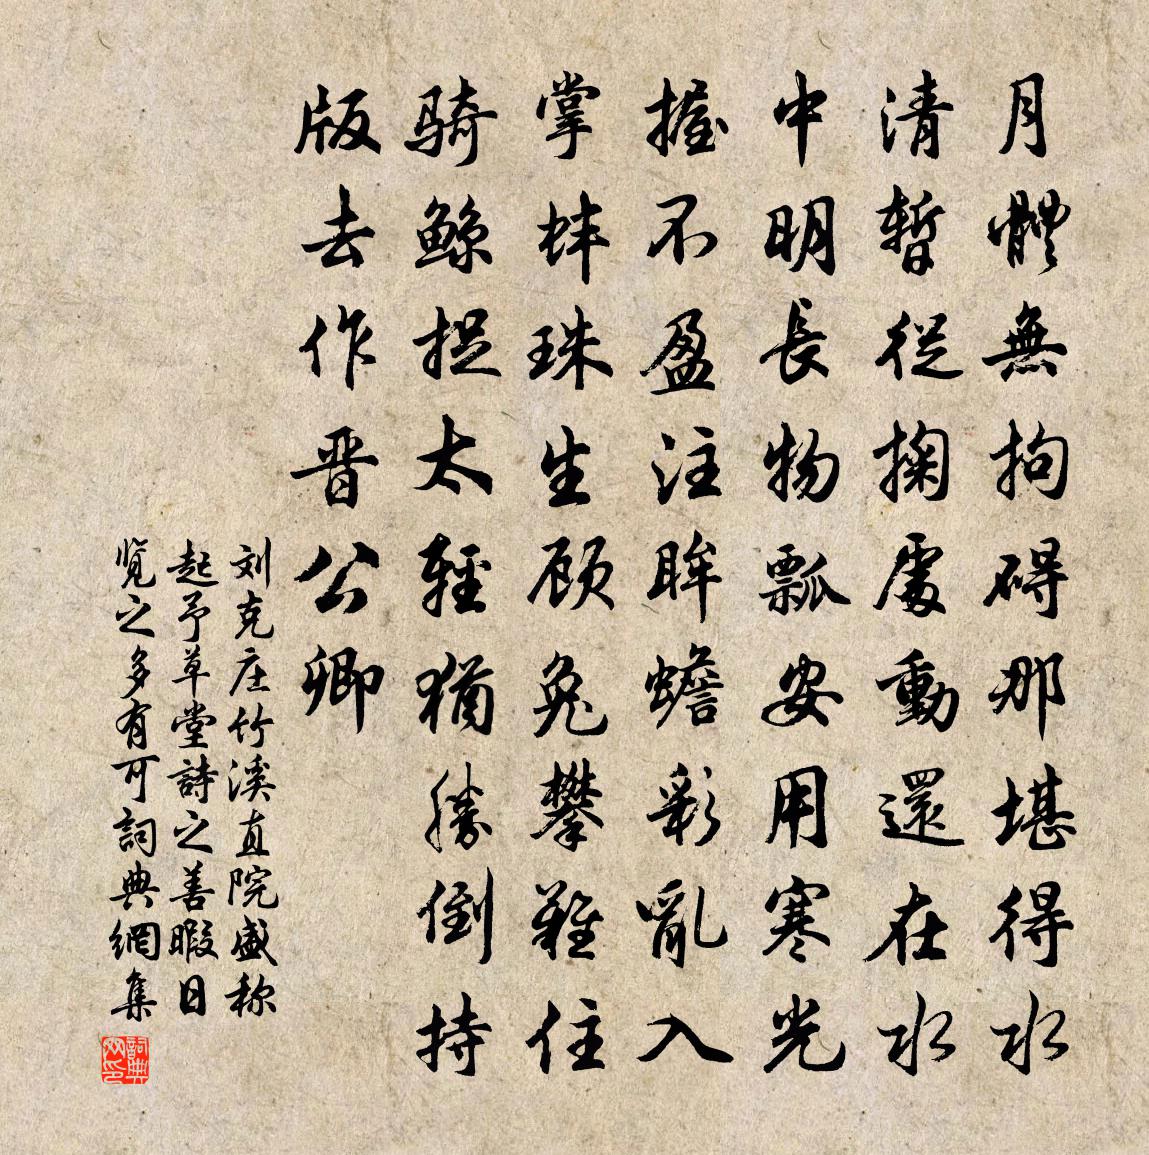 月體無拘碍那堪得水
清暫從掬處動還在水
中明長物瓢安用寒光
握不盈注眸蟾彩亂入
掌蚌珠生顾兔攀難住
骑鯨捉太輕猶勝倒持
版去作晋公卿
刘克庄竹溪直院盛称
起予草堂詩之善暇日
览之多有可詞典網集
詞典网印